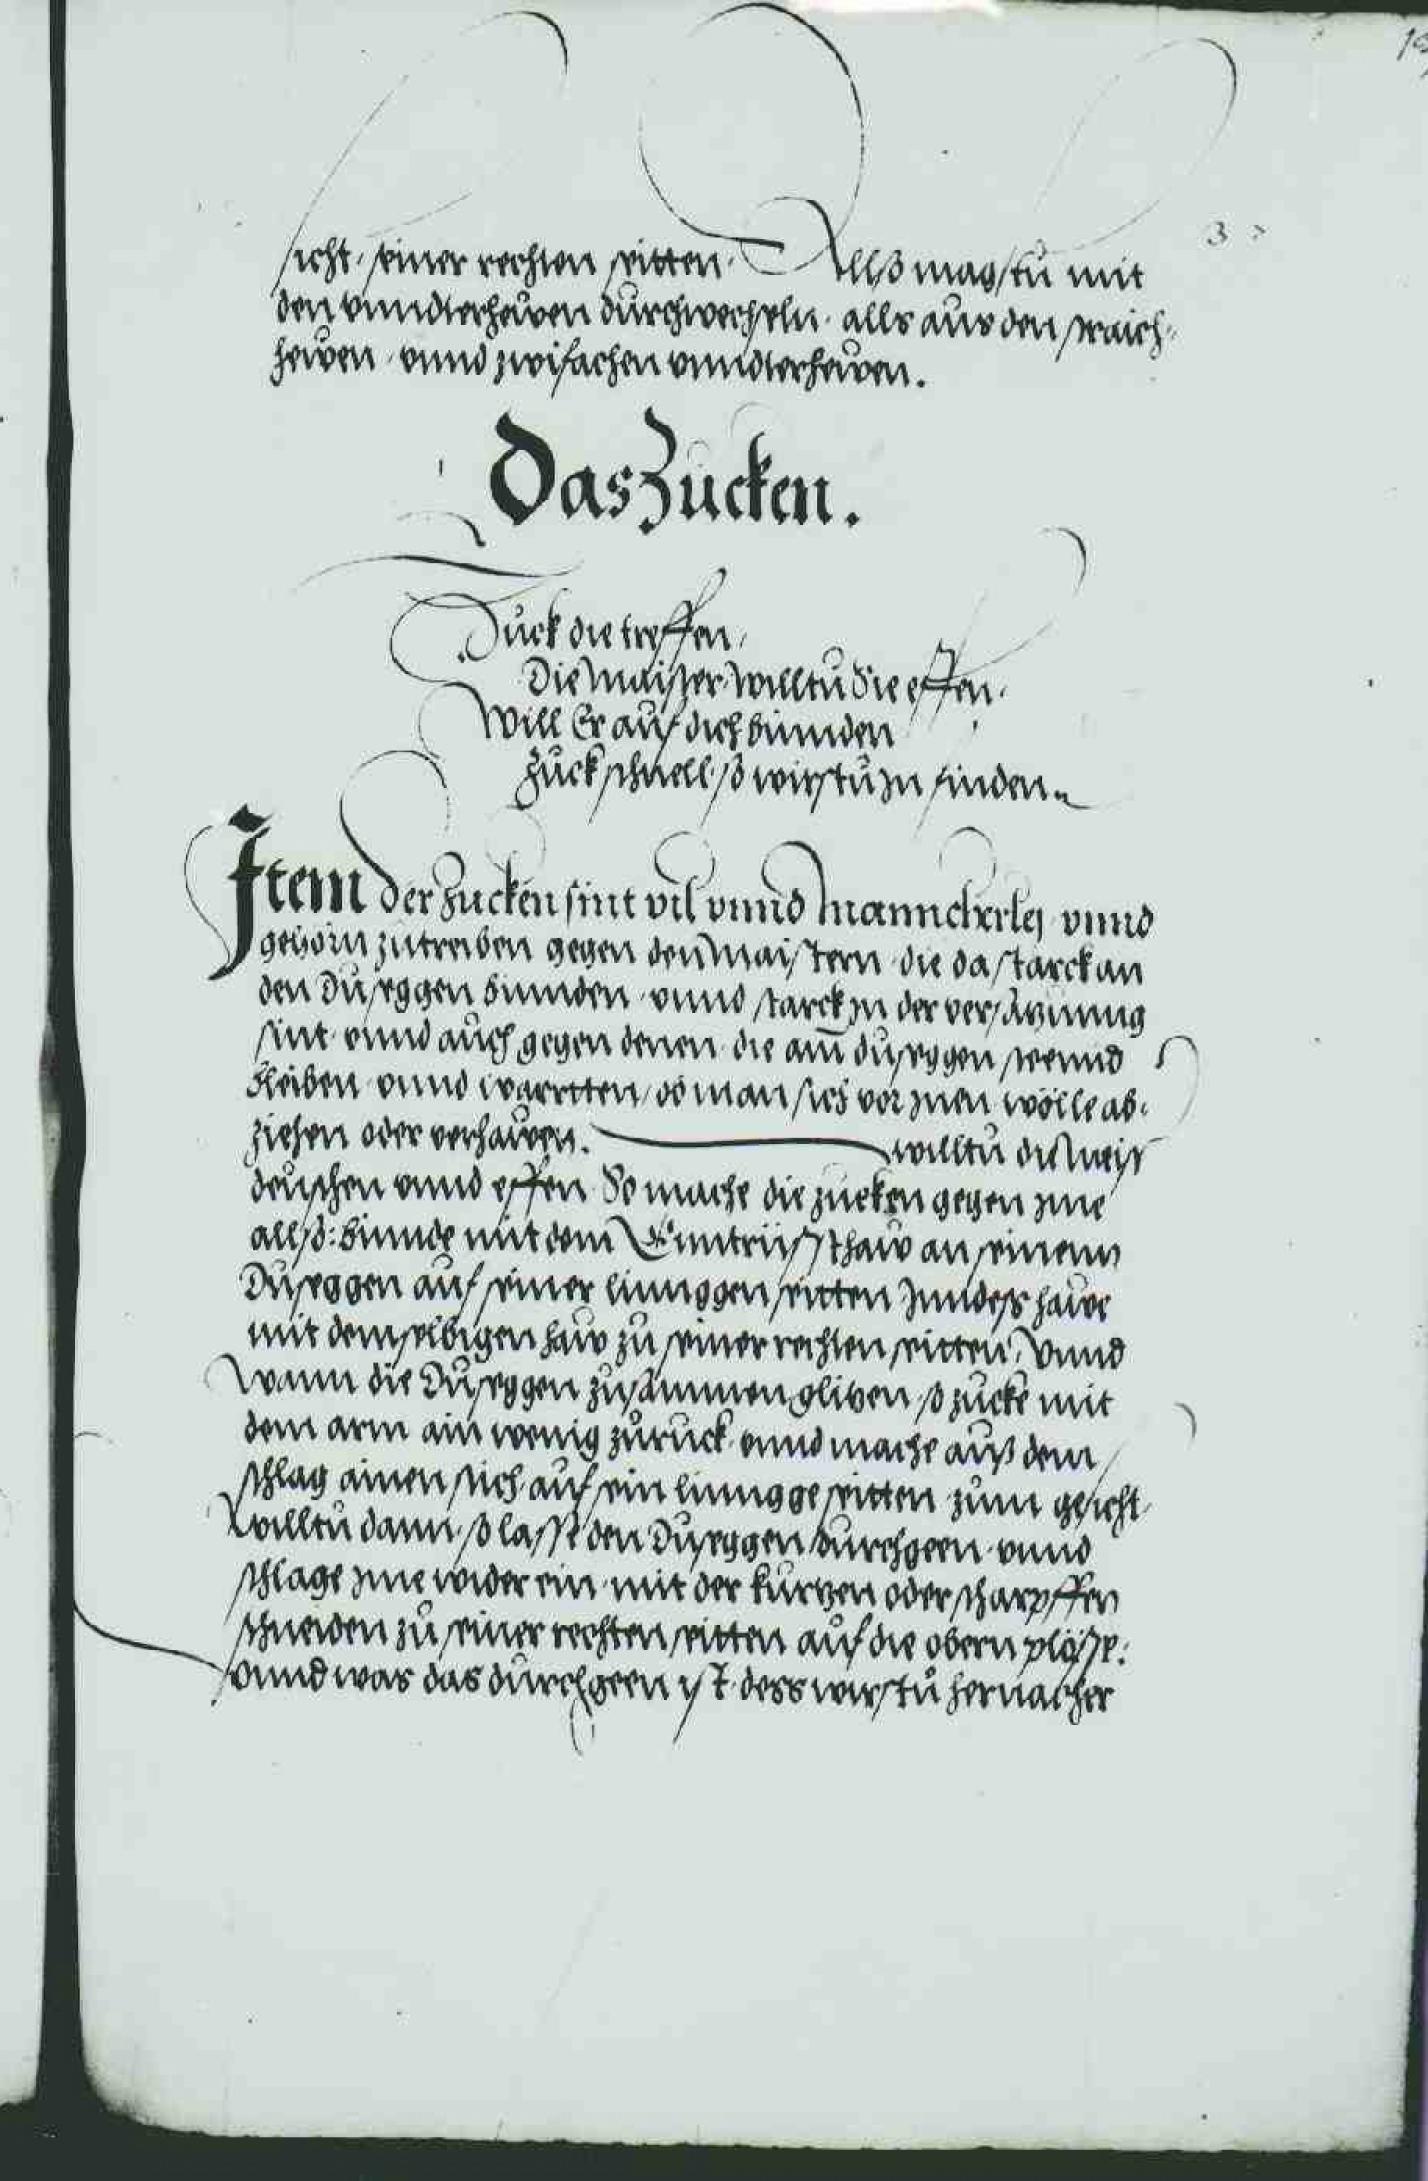 sicht, seiner rechten seitten. Allso magstu mit
den unndterhewen durchwechseln. alls aus den straich,
hewen, unnd zwifachen unndterhewen.
Das Zucken.
Zuck die treffen,
Die Maister, willtu die effen.
Will Er auf dich bünnden
Zuck schnell, so wirstu jn finden.
Item der zucken sint vil vnnd manncherley vnnd
gehörn zutreiben gegen den Maistern, die da starck an
den Dusggen bünnden, vnnd starck jn der versatzunng
sint. vnnd auch gegen denen die am Dusggen steennd
bleiben vnnd wartten, ob man sich vor jnen wölle ab,
ziehen oder verhawen. willtu die Maister
deuschen vnnd effen. So mache die zucken gegen jme
allso: binnde mit dem haw an seinenn
Dusggen auf seiner linnggen seitten Inndess hawe
mit demselbigen haw zu seiner rechten seitten, Vnnd
Wann die Dusggen zusammen gliben, so zucke mit
dem arm ain wenig zuruck. vnnd mache auß dem
schlag ainen stich, auf sein linngge seitten zum gesicht,
Willtu dann, so lasse den Dusggen durchgeen, vnnd
schlage jme wider ein, mit der kurtzen oder scharpffen
schneiden zu seiner rechten seitten auf die obern plösse:
Vnnd was das durchgeen yst, dess wirstu hernacher